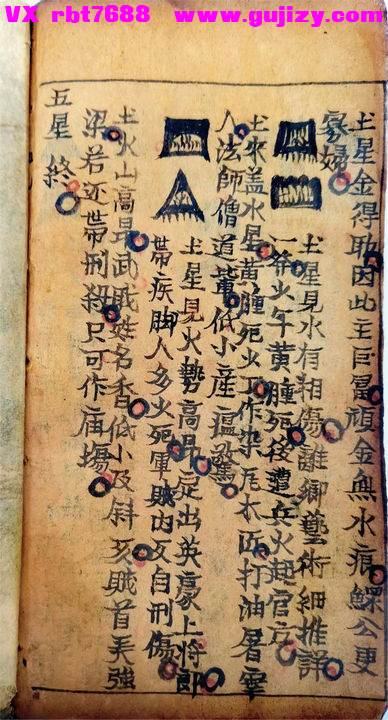 VX rbt7688 www.gujizy.com
土星金得助因此主巨富頑金無水痕鰥公更
寡婦
土星見水有相傷離鄉藝術細推詳
一爷少午黃腫死後遭兵火起官方
土來盖水星黃腫死少丁作染瓦木匠打油屠宰
人法師僧道輩低小產瘟驚
土星見火勢高昂定出英豪上將郎
帶疾脚人多火死軍賊內反自刑傷
土火山高昂武职姓名香低小及斜亥賊首美強
梁若还带刑殺只可作庙塲
五星終